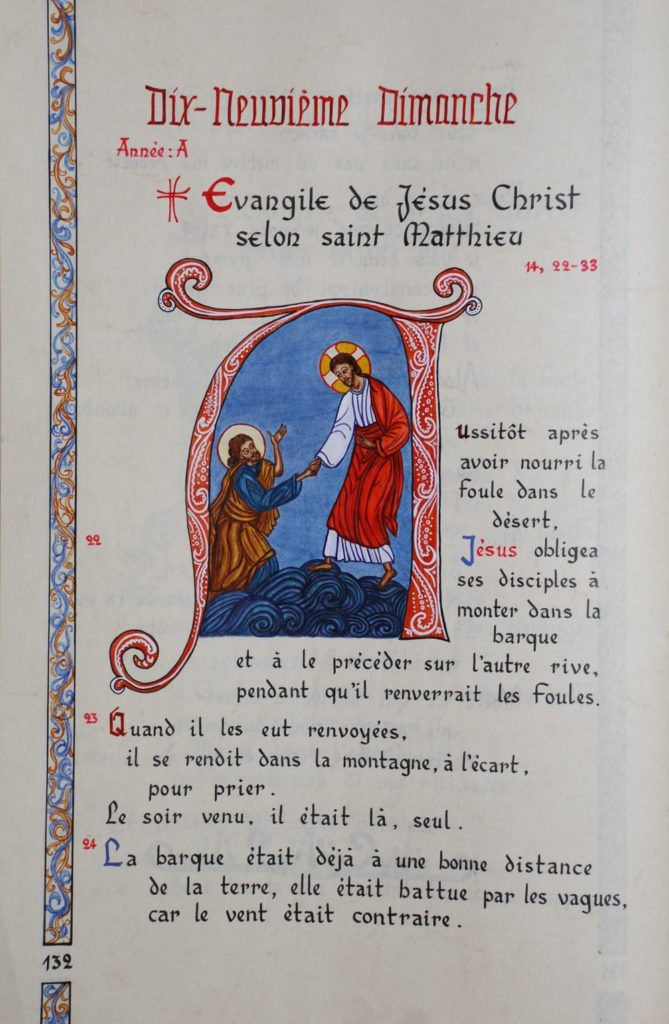 Dix-Neuvième Dimanche
Année: A
Evangile de Jésus Christ
selon saint Matthieu
14, 22-33
Aussitôt après
avoir nourri la
foule dans le
désert,
22
Jésus obligea
ses disciples à
monter dans la
barque
et à le précéder sur l'autre rive,
pendant qu'il renverrait les foules.
23 Quand il les eut renvoyées,
il se rendit dans la montagne, à l'écart,
pour prier.
Le soir venu, il était là, seul.
24 La barque était déjà à une bonne distance
de la terre, elle était battue par les vagues,
car le vent était contraire.
132